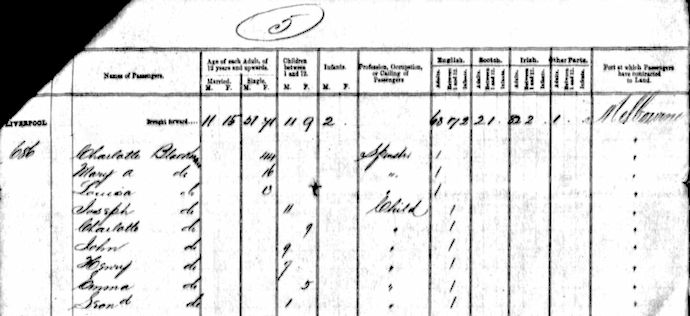 5
Names of Passengers. Age of each Adult, of 12 years and upwards. Children between 1 and 12. Infants. Profession, Occupation, or Calling of Passengers English. Scotch. Irish. Other Parts. Port at which Passengers have contracted to Land.
Married. Single.
M. F. M. F. M. F. M. F. Adults. Between 1 and 12. Infants. Adults. Between 1 and 12. Infants. Adults. Between 1 and 12. Infants. Adults. Between 1 and 12. Infants.
LIVERPOOL Brought forward 11 15 11 9 2 Melbourne
Charlotte 44 Spinster 1
Mary A do 16 " 1
Louisa do 13 1
Joseph do 11 Child 1
Charlotte do 9 " 1
John do 9 " 1
Henry do 7 " 1
Emma do 5 " 1
do 1 " 1